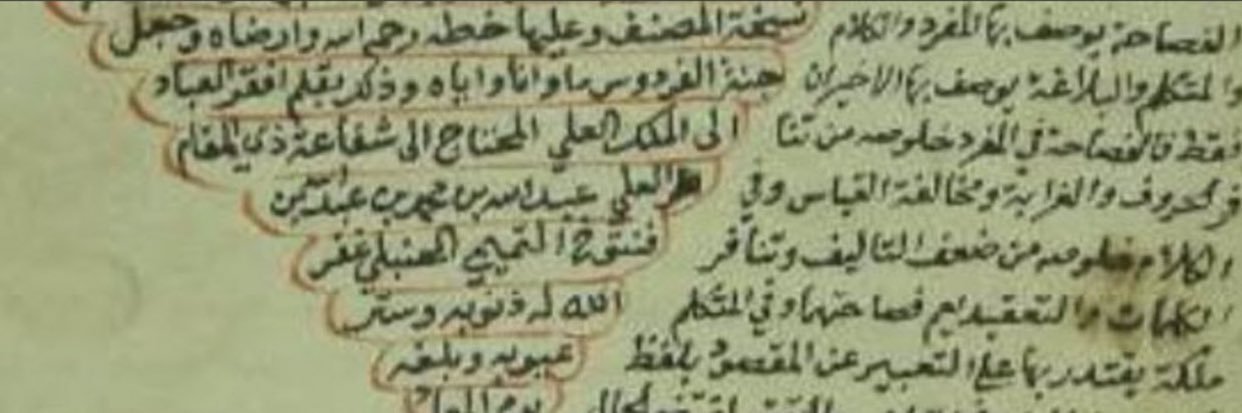 نسخة المصنف وعليها خطه رحمه الله وارضاه وجعل
جنة الفردوس ماوانا واياه وذكر بقلم افقر العباد
الى الملك العلي المحتاج الى شفاعة ذي المقام
العلي عبد الله بن محمد بن عبد الله بن
فنتوخ التميمي الحنبلي غفر
الله له ذنوبه وستر
عيوبه وبلغه
يوم
الفصاحة يوصف بها المفرد والكلام
والمتكلم والبلاغة يوصف بها الاخيران
فقط فالفصاحة في المفرد خلوصه من تنا
فر الحروف والغرابة ومخالفة القياس وفي
الكلام خلوصه من ضعف التاليف وتنافر
الكلمات والتعقيد مع فصاحتها وفي المتكلم
ملكة يقتدر بها على التعبير عن المقصود بلفظ